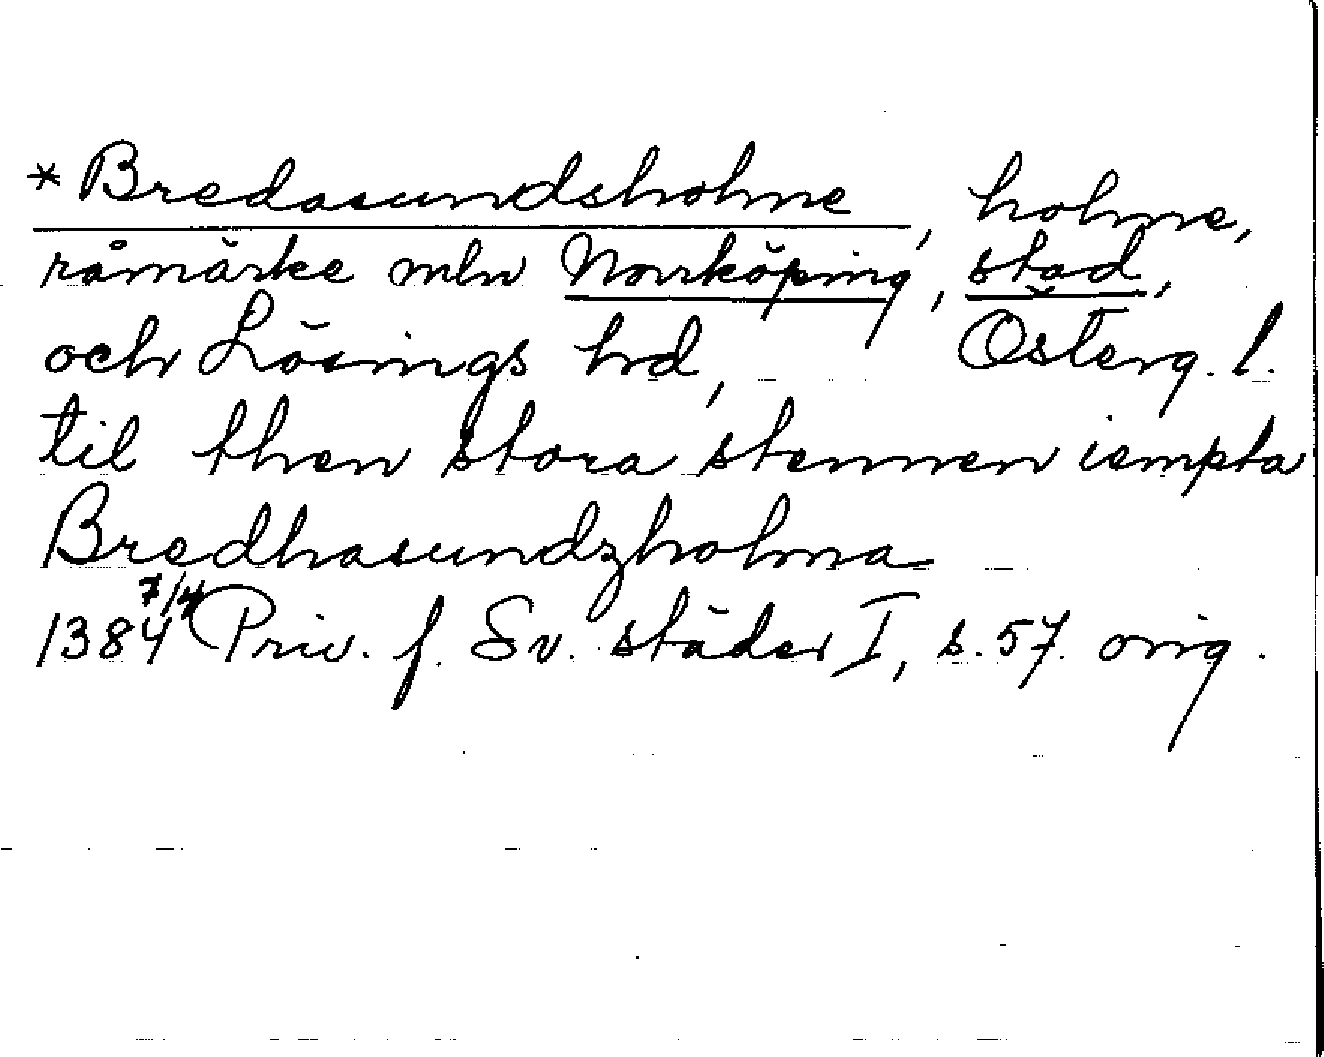 *Bredasundsholme, holme,
råmärke mln Norrköping, stad,
och Lösings hd, Österg. l.
til then stora stennen iempta
Bredhasundzholma
1384 7/4 Priv. f. Sv. städer I, s. 57. orig.